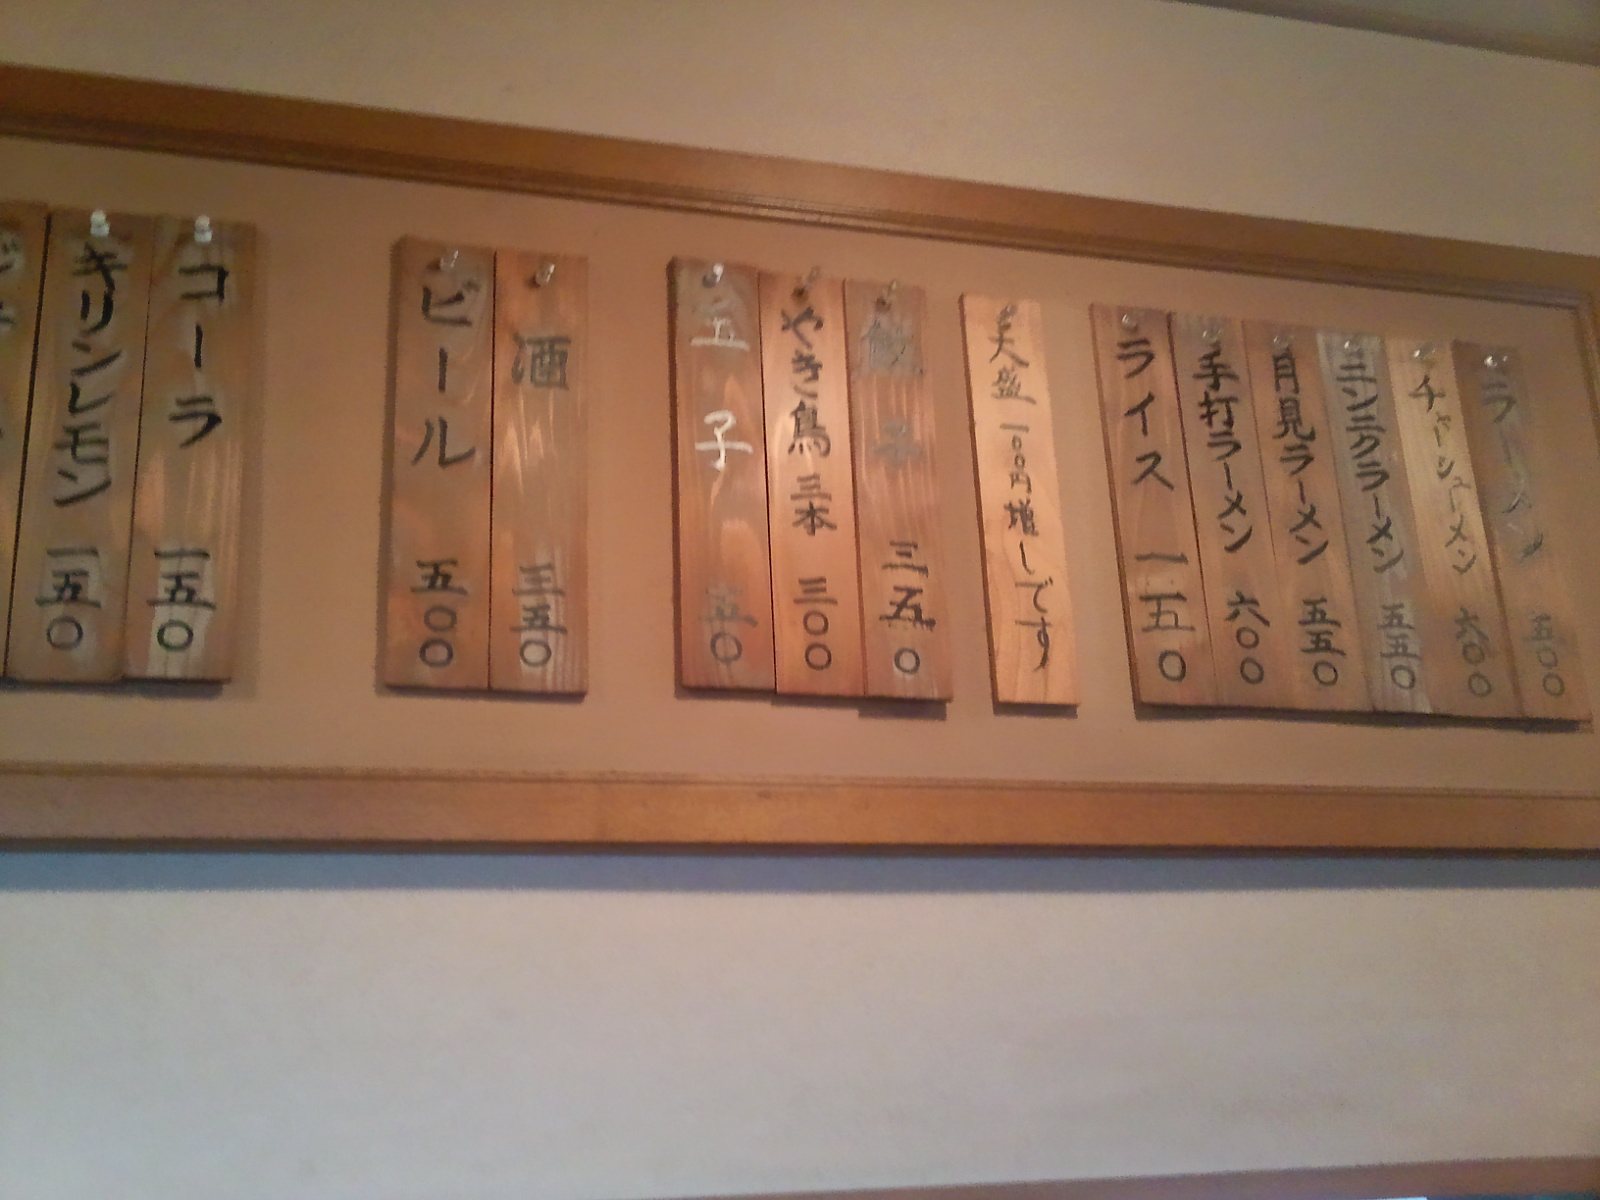 ラーメン 五〇〇
チャーシューメン 六〇〇
ニンニクラーメン 五五〇
月見ラーメン 五五〇
手打ラーメン 六〇〇
ライス 一五〇
大盛一〇〇円増しです
餃子 三五〇
やき鳥三本 三〇〇
玉子 五〇
酒 三五〇
ビール 五〇〇
コーラ 一五〇
キリンレモン 一五〇